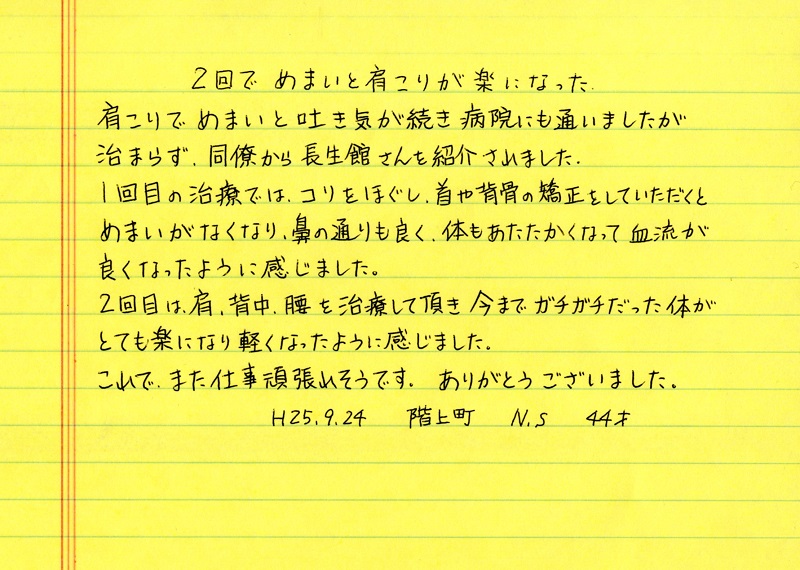 2回で めまいと肩こりが楽になった.
肩こりで めまいと吐き気が続き 病院にも通いましたが
治まらず、同僚から長生館さんを紹介されました.
1回目の治療では、コリをほぐし、首や背骨の矯正をしていただくと
めまいがなくなり、鼻の通りも良く、体もあたたかくなって血流が
良くなったように感じました。
2回目は、肩、背中、腰を治療して頂き 今までガチガチだった体が
とても楽になり軽くなったように感じました。
これで、また仕事頑張れそうです。 ありがとうございました。
H25.9.24 階上町 N.S 44才